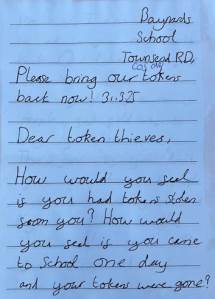 Baynards
School
Townsend RD,
Please bring our tokens
back now! 31.3.25
Dear token thieves,
How would you feel
if you had tokens stolen
from you? How would
you feel if you came
to School one day
and your tokens were gone?